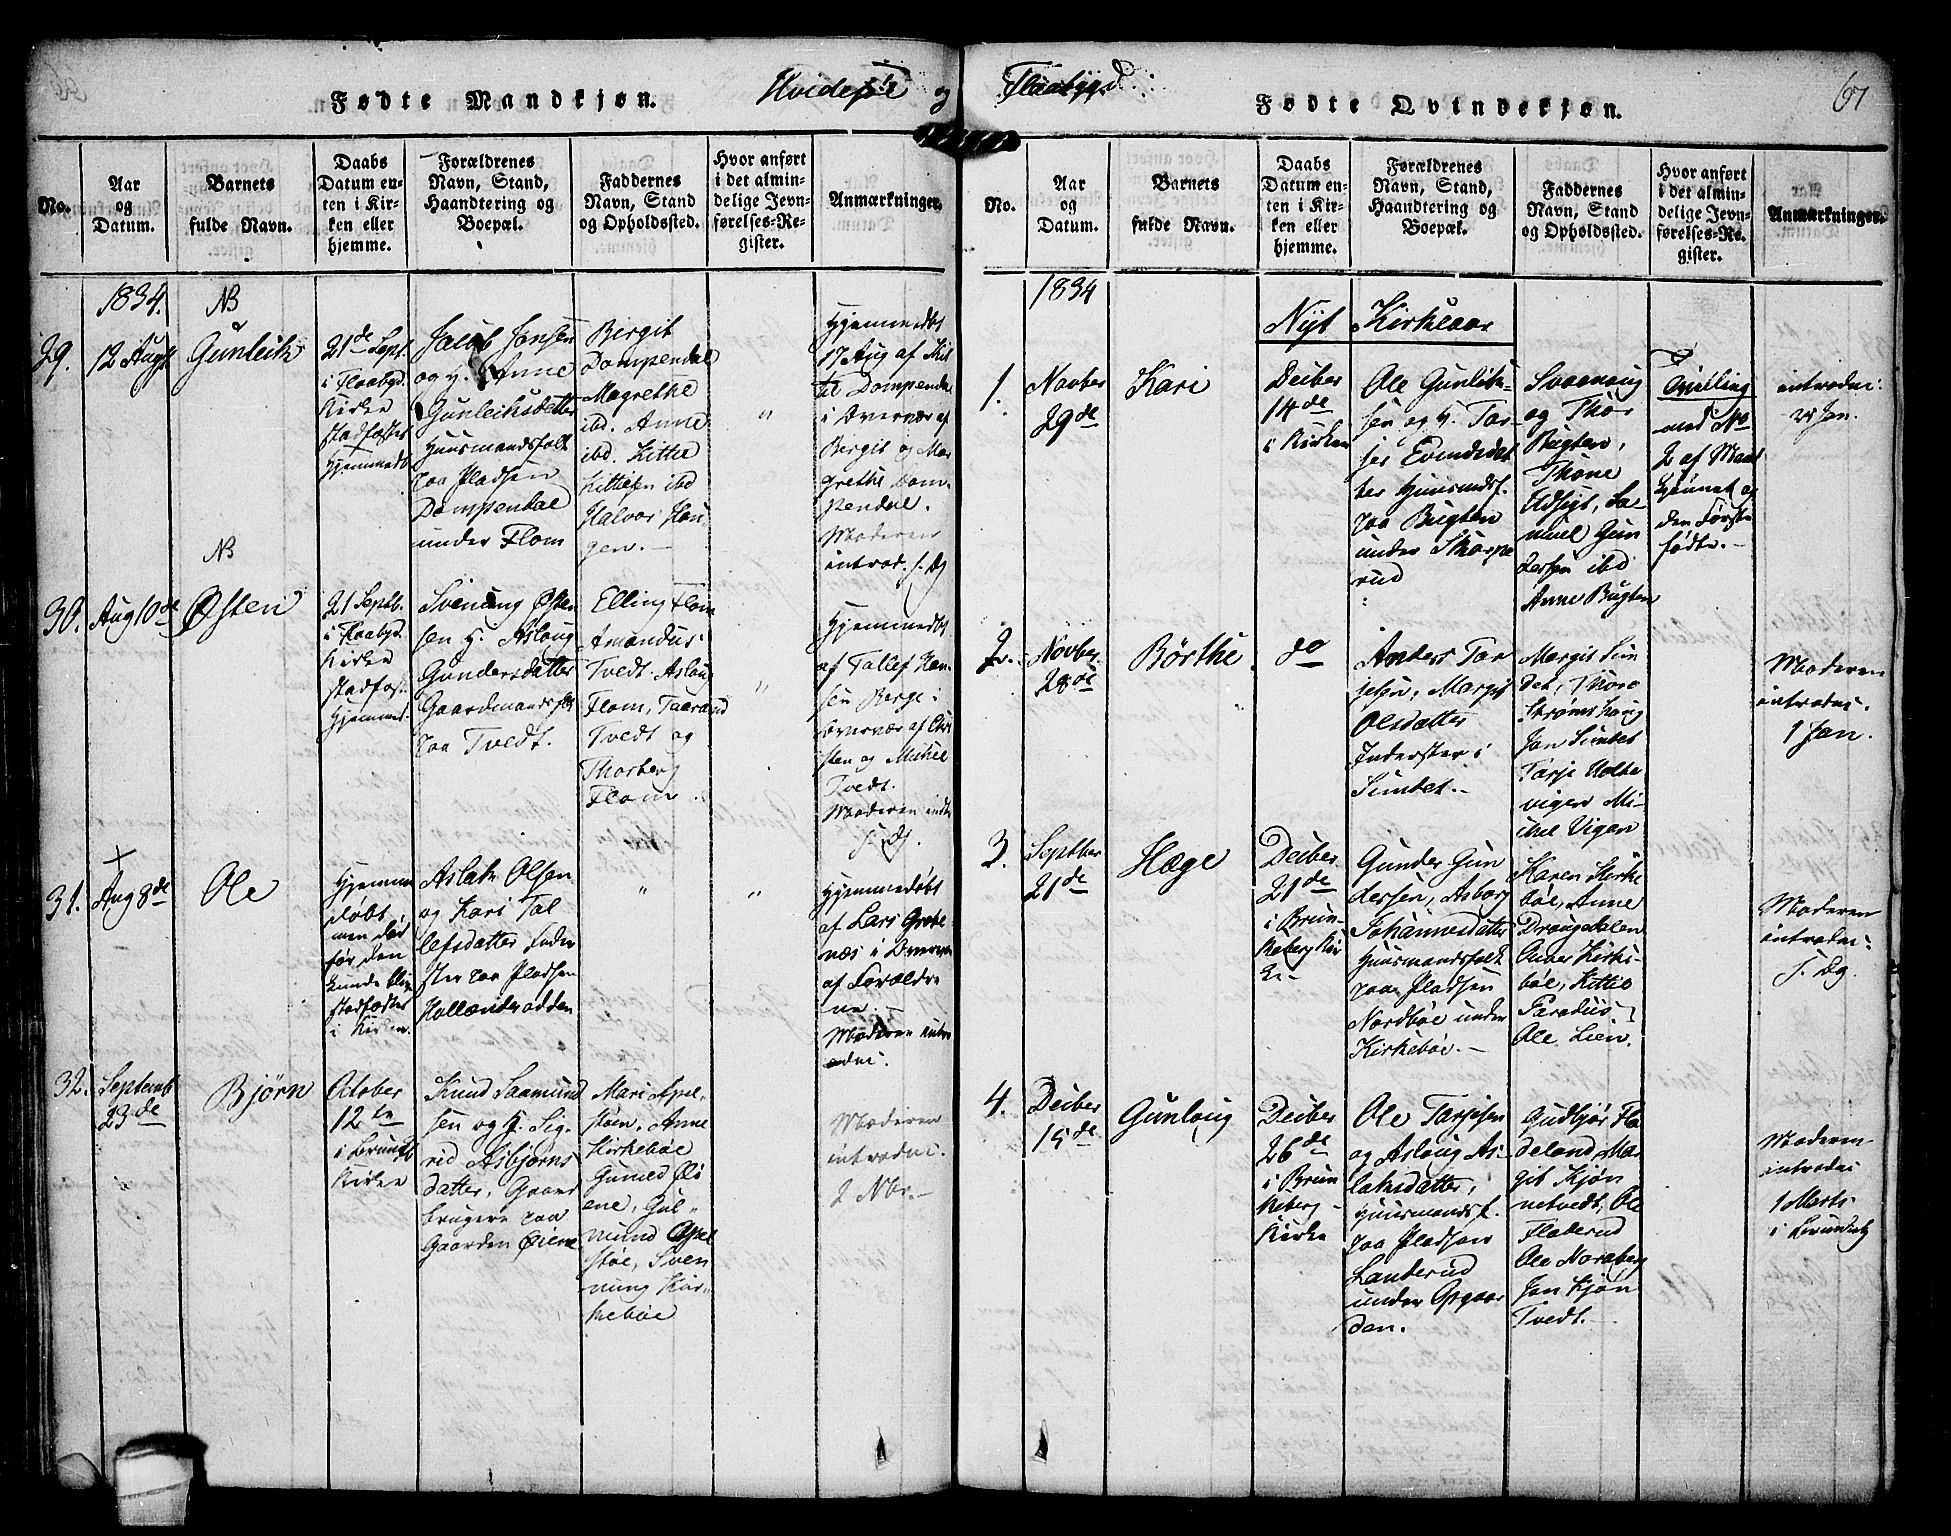 Fødte Mandkjøn.
Hvidesøe og
No.
Aar
og
Datum.
Barnets
fulde Navn.
Daabs
Datum en-
ten i Kir-
ken eller
hjemme.
Forældrenes
Navn, Stand,
Haandtering og
Boepæl.
Faddernes
Navn, Stand
og Opholdssted.
Hvor anført
i det almin-
delige Jevn-
førelses-Re-
gister.
Anmærkninger.
1834.
NB
29.
12 Augt
Gunleik
21de Sept.
i Flaabygd
Kirke
stadfæstet
Hjemmedb
Jacob Jonsen
og H. Anne
Gunleiksdatter
Huusmandsfolk
paa Pladsen
Dompendal
under Flom
Bergit
Dompendal
Magrethe
ibd. Anne
ibd. Kittil
Kittilsen ibd
Halvor Hau-
gen.
"
Hjemmedøbt
17 Aug af Kit-
til Dompendal
i Overvær af
Bergit og Ma-
grethe Dom-
pendal.
Moderen
introd. s. Dg
NB
30.
Aug 10de
Østen
21 Septb.
i Flaabygd
Kirke
stadfæst
Hjemmed.
Svenung Østen
sen H. Aslaug
Gundersdatter
Gaardmandsfolk
paa Tvedt.
Elling Flom
Amandus
Tvedt Aslaug
Flom, Taarand
Tvedt og
Thorberg
Flom.
"
Hjemmedøbt
af Tallef Han-
sen Berge i
Overvær af
sten og
Tvedt.
Moderen indt
s. Dg.
31.
Aug 8de
Ole
Hjemme
døbt
men død
før den
kunde blive
stadfæstet
i Kirken.
Aslak Olsen
og Kari Tal
lefsdatter Inder
ster paa Pladsen
Hollænderodden
"
"
Hjemmedøbt
af Lars Grave-
næs i Overvær
af Forældre
ne.
Moderen intro
32.
Septemb
23de
Bjørn
October
12te
i Brunkb
Kirke
Knud Saamund
sen og H. Sig-
rid Asbjørns
datter, Gaard
brugere paa
Gaarden Øiene
Mari Apel-
støen, Anne
Kirkebøe
Gunild Øi
ene, Gul-
mund Apel
støe, Sven
nung Kir-
kebøe
Moderen
introduc.
2 Nbr.
Flaabygd
Fødte Qvindekjøn.
67
No.
Aar
og
Datum.
Barnets
fulde Navn.
Daabs
Datum en-
ten i Kir-
ken eller
hjemme.
Forældrenes
Navn, Stand,
Haandtering og
Boepæl.
Faddernes
Navn, Stand
og Opholdssted.
Hvor anført
i det almin-
delige Jevn-
førelses-Re-
gister.
Anmærkninger.
1834
Nyt Kirkeaar
1.
Novber
29de
Kari
Deiber
14de
i Kirken
Ole Gunleik-
sen og H. Tor-
Evindsdat
ter Huusmdsf.
paa Bugten
under Skorpe
rud
Svaenoug
og Thor
Bugten,
Thone
Sa-
muel Gun
dersen ibd
Anne Bugten
Tvilling
med No
2 af Mand
kjønnet og
den første
fødte.
introduc.
Jan.
2.
Novber
28de
Børthe
do
Anders Tar
jesen, Margit
Olsdatter
Inderster i
Sundet.
Margit Sun
det, Thore
Strømshaug
Jan Sundet
Tarje Holte
vigen Mi-
chel Vigen
Moderen
introduc.
1 Jan.
3.
Septber
21de
Hæge
Deiber
21de
i Brun-
keberg Kir
ke
Gunder Gun
dersen, Asborg
Johannesdatter
Huusmandsfolk
paa Pladsen
Nordbøe under
Kirkebøe.
Karen Kirke
bøe, Anne
Draugedalen
Kirke-
bøe, Kittil
Paradiis
Ole Lien.
Moderen
introduc.
s. Dg.
4.
Deiber
15de
Gunloug
Deiber
26de
i Brun
keberg
Kirke
Ole Tarjesen
og Aslaug As-
laksdatter,
Huusmandsf.
paa Pladsen
Landerud
under Opgaar
den.
Gudbjør Fla
deland, Mar-
git Kjøn
netvedt, Ole
Flaterud
Ole Noreberg
Jan Kjøn
Tvedt.
Moderen
introduc
1 Marts
i Brunkeb